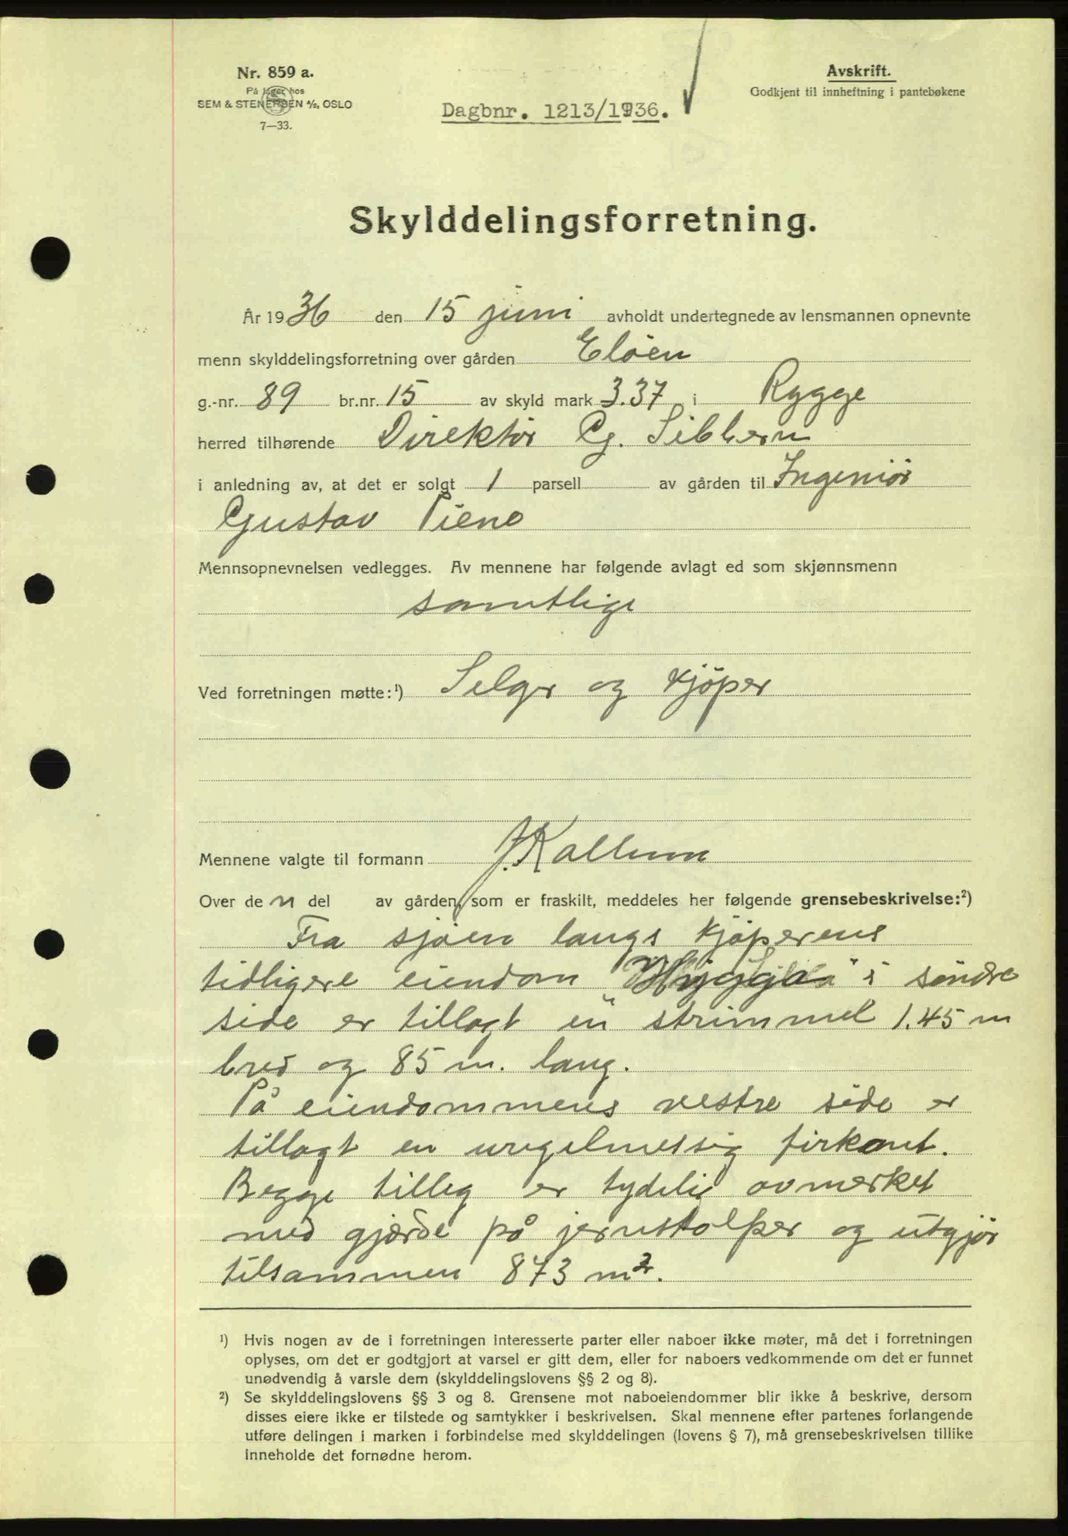 Nr. 859 a.
På lager hos
SEM & STENERSEN A/S, OSLO
7—33.
Dagbnr. 1213/1936.
Avskrift.
Godkjent til innheftning i pantebøkene
Skylddelingsforretning.
År 1936 den 15 juni avholdt undertegnede av lensmannen opnevnte
menn skylddelingsforretning over gården Eløen
g.-nr. 89 br.nr. 15 av skyld mark 3.37 i Rygge
herred tilhørende Direktør Cg. Sibbern
i anledning av, at det er solgt 1 parsell av gården til Ingeniør
Gustav Piene
Mennsopnevnelsen vedlegges. Av mennene har følgende avlagt ed som skjønnsmenn
samtlige
Ved forretningen møtte:¹) Selger og Kjøper
Mennene valgte til formann J. Kallum
Over den del av gården, som er fraskilt, meddeles her følgende grensebeskrivelse:²)
Fra sjøen langs kjøperens
tidligere eiendom " " i søndre
side er tillagt en strimmel 1.45 m
bred og 85 m. lang.
På eiendommens vestre side er
tillagt en uregelmessig firkant.
Begge tilleg er tydelig avmerket
med gjærde på jernstolper og utgjør
tilsammen 873 m².
¹) Hvis nogen av de i forretningen interesserte parter eller naboer ikke møter, må det i forretningen
oplyses, om det er godtgjort at varsel er gitt dem, eller for naboers vedkommende om det er funnet
unødvendig å varsle dem (skylddelingslovens §§ 2 og 8).
²) Se skylddelingslovens §§ 3 og 8. Grensene mot naboeiendommer blir ikke å beskrive, dersom
disses eiere ikke er tilstede og samtykker i beskrivelsen. Skal mennene efter partenes forlangende
utføre delingen i marken i forbindelse med skylddelingen (lovens § 7), må grensebeskrivelsen tillike
inneholde det fornødne herom.